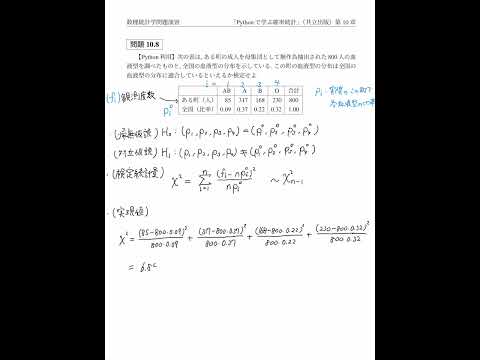 数理統計学問題演習 「Pythonで学ぶ確率統計」（共立出版）第 10 章
問題 10.8
【Python 利用】次の表は、ある町の成人を母集団として無作為抽出された 800 人の血
液型を調べたものと、全国の血液型の分布を示している．この町の血液型の分布は全国の
血液型の分布に適合しているといえるか検定せよ
i= 1 2 3 4
AB A B O 合計
(fi) 観測度数 ある町（人） 85 317 168 230 800
pi⁰ 全国（比率） 0.09 0.37 0.22 0.32 1.00
pi: 実際のこの町で
各血液型の比率
・(帰無仮説) H₀ : (p₁, p₂, p₃, p₄) = (p₁⁰, p₂⁰, p₃⁰, p₄⁰)
・(対立仮説) H₁ : (p₁, p₂, p₃, p₄) ≠ (p₁⁰, p₂⁰, p₃⁰, p₄⁰)
・(検定統計量) χ² = Σ_{i=1}^{n} (fi - npi⁰)² / npi⁰ ~ χ²_{n-1}
・(実現値)
χ² = (85-800·0.09)² / 800·0.09 + (317-800·0.37)² / 800·0.37 + (168-800·0.22)² / 800·0.22 + (230-800·0.32)² / 800·0.32